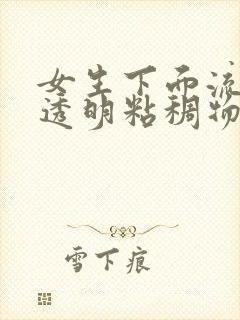 女生下面流
透明粘稠物
雪下痕